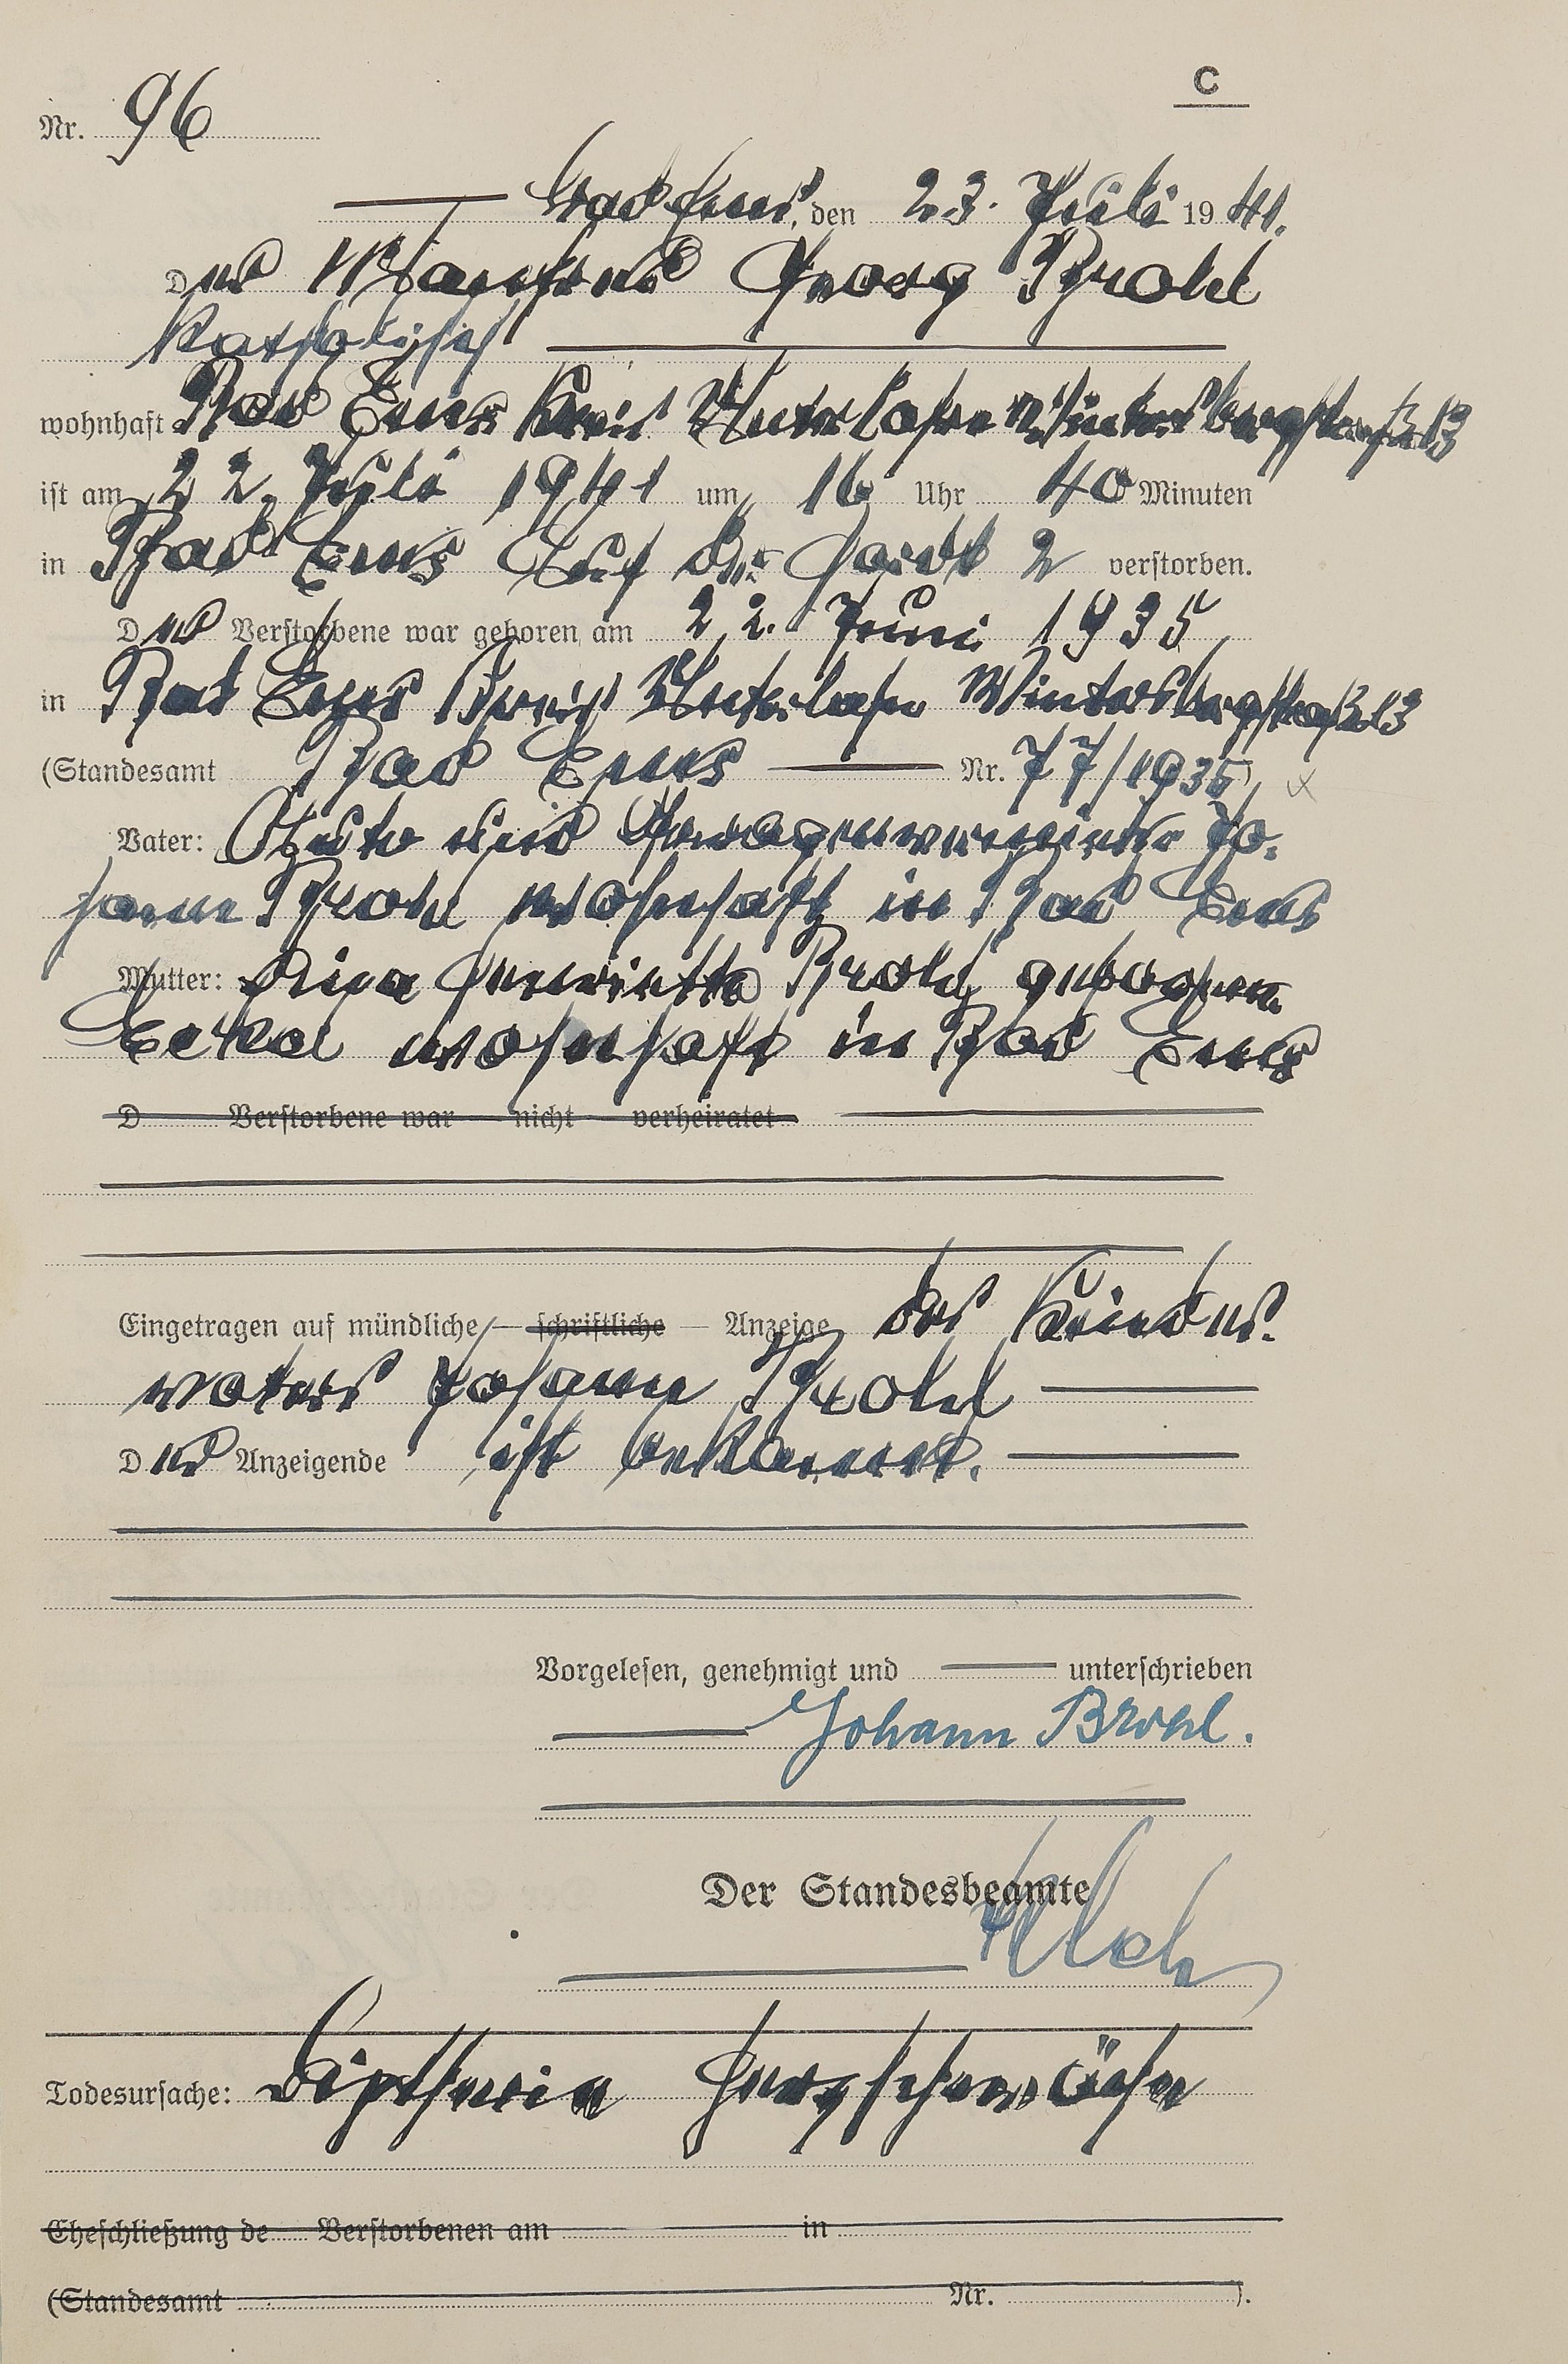 C
Nr. 96
Bad Ems, den 23. Juli 1941.
Der Manfred Georg Brohl
katholisch
wohnhaft Bad Ems Kreis Unterlahn Wintersbergstraße 13
ist am 22. Juli 1941 um 16 Uhr 40 Minuten
in Bad Ems Auf der 2 verstorben.
Der Verstorbene war geboren am 22. Juni 1935
in Bad Ems Kreis Unterlahn Wintersbergstraße 13
(Standesamt Bad Ems Nr. 77/1935)
Vater: und Jo-
hann Brohl wohnhaft in Bad Ems
Mutter: Henriette Brohl geborene
Eckel wohnhaft in Bad Ems
D Verstorbene war nicht verheiratet
Eingetragen auf mündliche – schriftliche – Anzeige des Kindes-
vaters Johann Brohl
Der Anzeigende ist bekannt.
Vorgelesen, genehmigt und unterschrieben
Johann Brohl.
Der Standesbeamte
Todesursache: Diptherie Herzschwäche
Eheschließung de Verstorbenen am in
(Standesamt Nr. ).